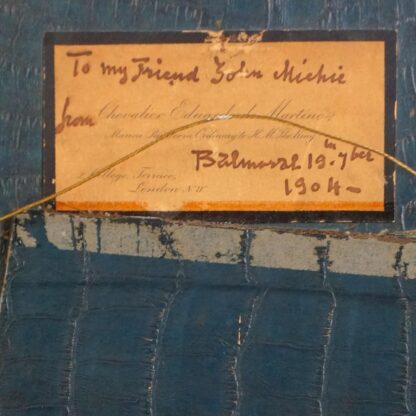 To my Friend John Michie
from Chevalier Eduardo de Martino
Marine Painter in Ordinary to H.M. The King
Balmoral 19th 7ber
College Terrace,
1904–
London N.W